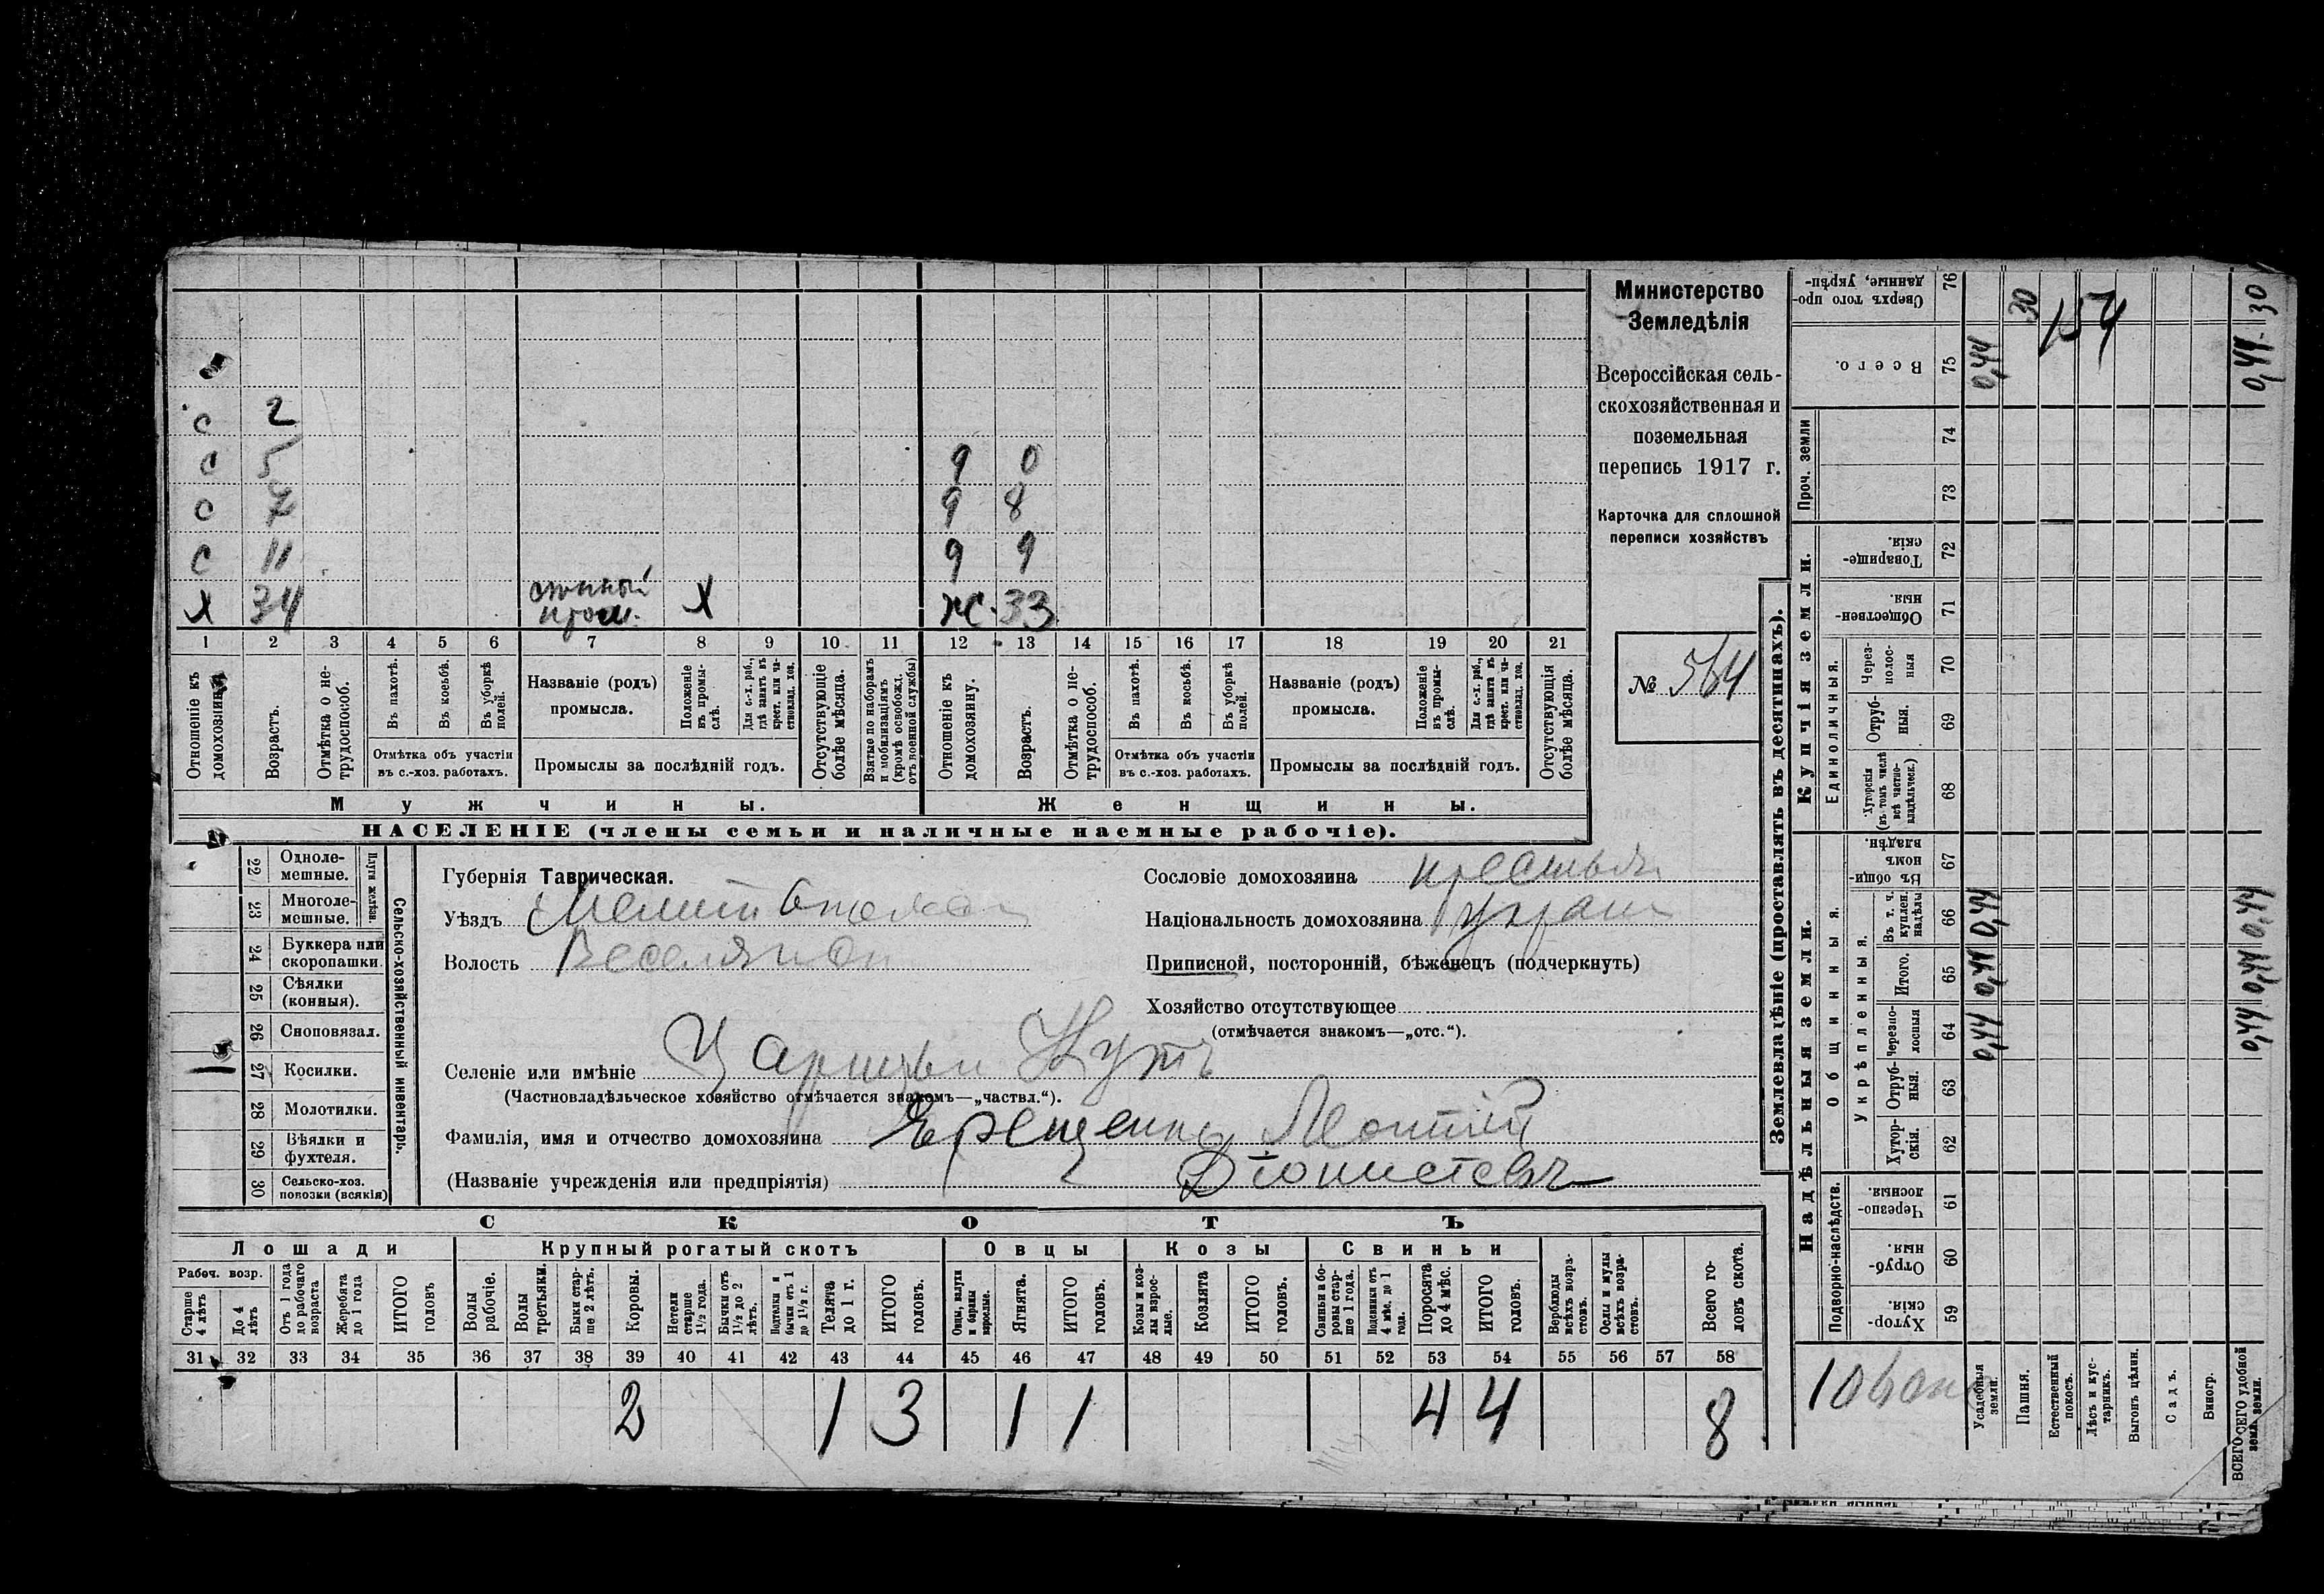 с 2
с 5 д 0
с 7 д 8
с 11 д 9
х 34 х ж. 33
1 2 3 4 5 6 7 8 9 10 11 12 13 14 15 16 17 18 19 20 21
Отношеніе къ домохозяину.
Возрастъ.
Отмѣтка о не-
трудоспособ.
Въ пахотѣ.
Въ косьбѣ.
Въ уборкѣ
полей.
Отмѣтка объ участіи
въ с.-хоз. работахъ.
Названіе (родъ)
промысла.
Положеніе
въ промы-
слѣ.
Для с.-х. раб.,
гдѣ занятъ въ
крест. или ча-
стновлад. хоз.
Промыслы за послѣдній годъ.
Отсутствующіе
болѣе мѣсяца.
Взятые по наборамъ
и мобилизаціямъ
(кромѣ освобожд.
отъ военной службы)
Отношеніе къ
домохозяину.
Возрастъ.
Отмѣтка о не-
трудоспособ.
Въ пахотѣ.
Въ косьбѣ.
Въ уборкѣ
полей.
Отмѣтка объ участіи
въ с.-хоз. работахъ.
Названіе (родъ)
промысла.
Положеніе
въ промы-
слѣ.
Для с.-х. раб.,
гдѣ занята въ
крест. или ча-
стновлад. хоз.
Промыслы за послѣдній годъ.
Отсутствующія
болѣе мѣсяца.
Мужчины.
Женщины.
НАСЕЛЕНІЕ (члены семьи и наличные наемные рабочіе).
Министерство
Земледѣлія
Всероссійская сель-
скохозяйственная и
поземельная
перепись 1917 г.
Карточка для сплошной
переписи хозяйствъ
№ 564
22 Одноле-
мешные.
23 Многоле-
мешные.
Плуги желѣзн.
24 Буккера или
скоропашки.
25 Сѣялки
(конныя).
26 Сноповязал.
27 Косилки.
28 Молотилки.
29 Вѣялки и
фухтеля.
30 Сельско-хоз.
повозки (всякія)
Сельско-хозяйственный инвентарь.
Губернія Таврическая.
Уѣздъ
Волость
Селеніе или имѣніе Царицын Кутъ
(Частновладѣльческое хозяйство отмѣчается знакомъ—„частвл.“).
Фамилія, имя и отчество домохозяина Ярещенко Леонтій
(Названіе учрежденія или предпріятія) Діонисіевъ
Сословіе домохозяина
Національность домохозяина
Приписной, посторонній, бѣженецъ (подчеркнуть)
Хозяйство отсутствующее
(отмѣчается знакомъ—„отс.“).
СКОТЪ
Лошади
Крупный рогатый скотъ
Овцы
Козы
Свиньи
Рабоч. возр.
Старше
4 лѣтъ
До 4
лѣтъ
Отъ 1 года
до рабочаго
возраста
Жеребята
до 1 года
ИТОГО
головъ
Волы
рабочіе.
Волы
третьяки.
Быки стар-
ше 2 лѣтъ.
Коровы.
Нетели
старше
1½ года.
Бычки отъ
1½ до 2
лѣтъ.
Подтелки и
бычки отъ 1
до 1½ г.
Телята
до 1 г.
ИТОГО
головъ.
Овцы, валухи
и бараны
взрослые.
Ягнята.
ИТОГО
головъ.
Козы и коз-
лы взрос-
лые.
Козлята
ИТОГО
головъ.
Свиньи и бо-
ровы стар-
ше 1 года.
Подсвинки отъ
4 мѣс. до 1
года.
Поросята
до 4 мѣс.
ИТОГО
головъ.
Верблюды
всѣхъ возра-
стовъ.
Ослы и мулы
всѣхъ возра-
стовъ.
Всего го-
ловъ скота.
31 32 33 34 35 36 37 38 39 40 41 42 43 44 45 46 47 48 49 50 51 52 53 54 55 56 57 58
2 1 3 1 1 4 4 8
Землевладѣніе (проставлять въ десятинахъ).
Надѣльныя земли.
Купчія земли.
Проч. земли
Подворно-наслѣдств.
Общинныя.
Укрѣпленныя.
Единоличныя.
Хутор-
скія.
59
Отруб-
ныя.
60
Черезпо-
лосныя.
61
Хутор-
скія.
62
Отруб-
ныя.
63
Черезпо-
лосныя
64
Итого.
65
Въ т. ч.
куплен.
надѣлы
66
Въ общи-
номъ
владѣн.
67
Хуторскія
(въ томъ числѣ
всѣ частно-
владѣльческ.)
68
Отруб-
ныя.
69
Через-
полос-
ныя
70
Обществен-
ныя.
71
Товарище-
скія.
72
73
74
Всего.
75
Сверхъ того про-
данные, укрѣп-
76
Усадебныя
земли.
0,44 0,44 0,44 0,44
Пашня.
30
Естественный
покосъ.
154
Лѣсъ и кус-
тарникъ.
Выгонъ цѣлин.
Садъ.
Виногр.
ВСЕГО удобной
земл.
0,44 0,44 0,44 0,44 30